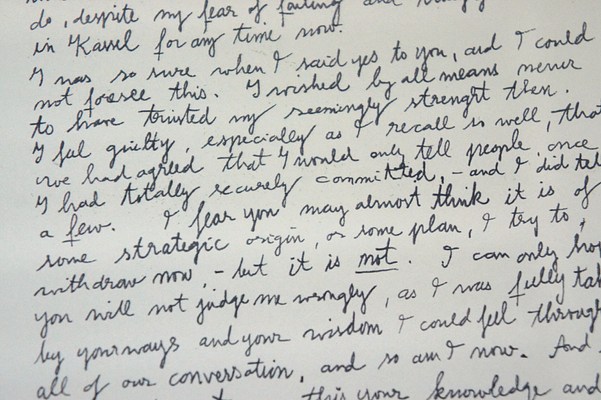 do, despite my fear of failing and
in Kassel for any time now.
I was so sure when I said yes to you, and I could
not foresee this. I wished by all means never
to have trusted my seemingly strenght then.
I feel guilty, especially as I recall so well, that
we had agreed that I would only tell people, once
I had totally securely committed, - and I did tell
a few. I fear you may almost think it is of
some strategic origin, or some plan, I try to,
withdraw now, - but it is not. I can only hop
you will not judge me wrongly, as I was fully tak
by your ways and your wisdom I could feel through
all of our conversation, and so am I now. And
this your knowledge and